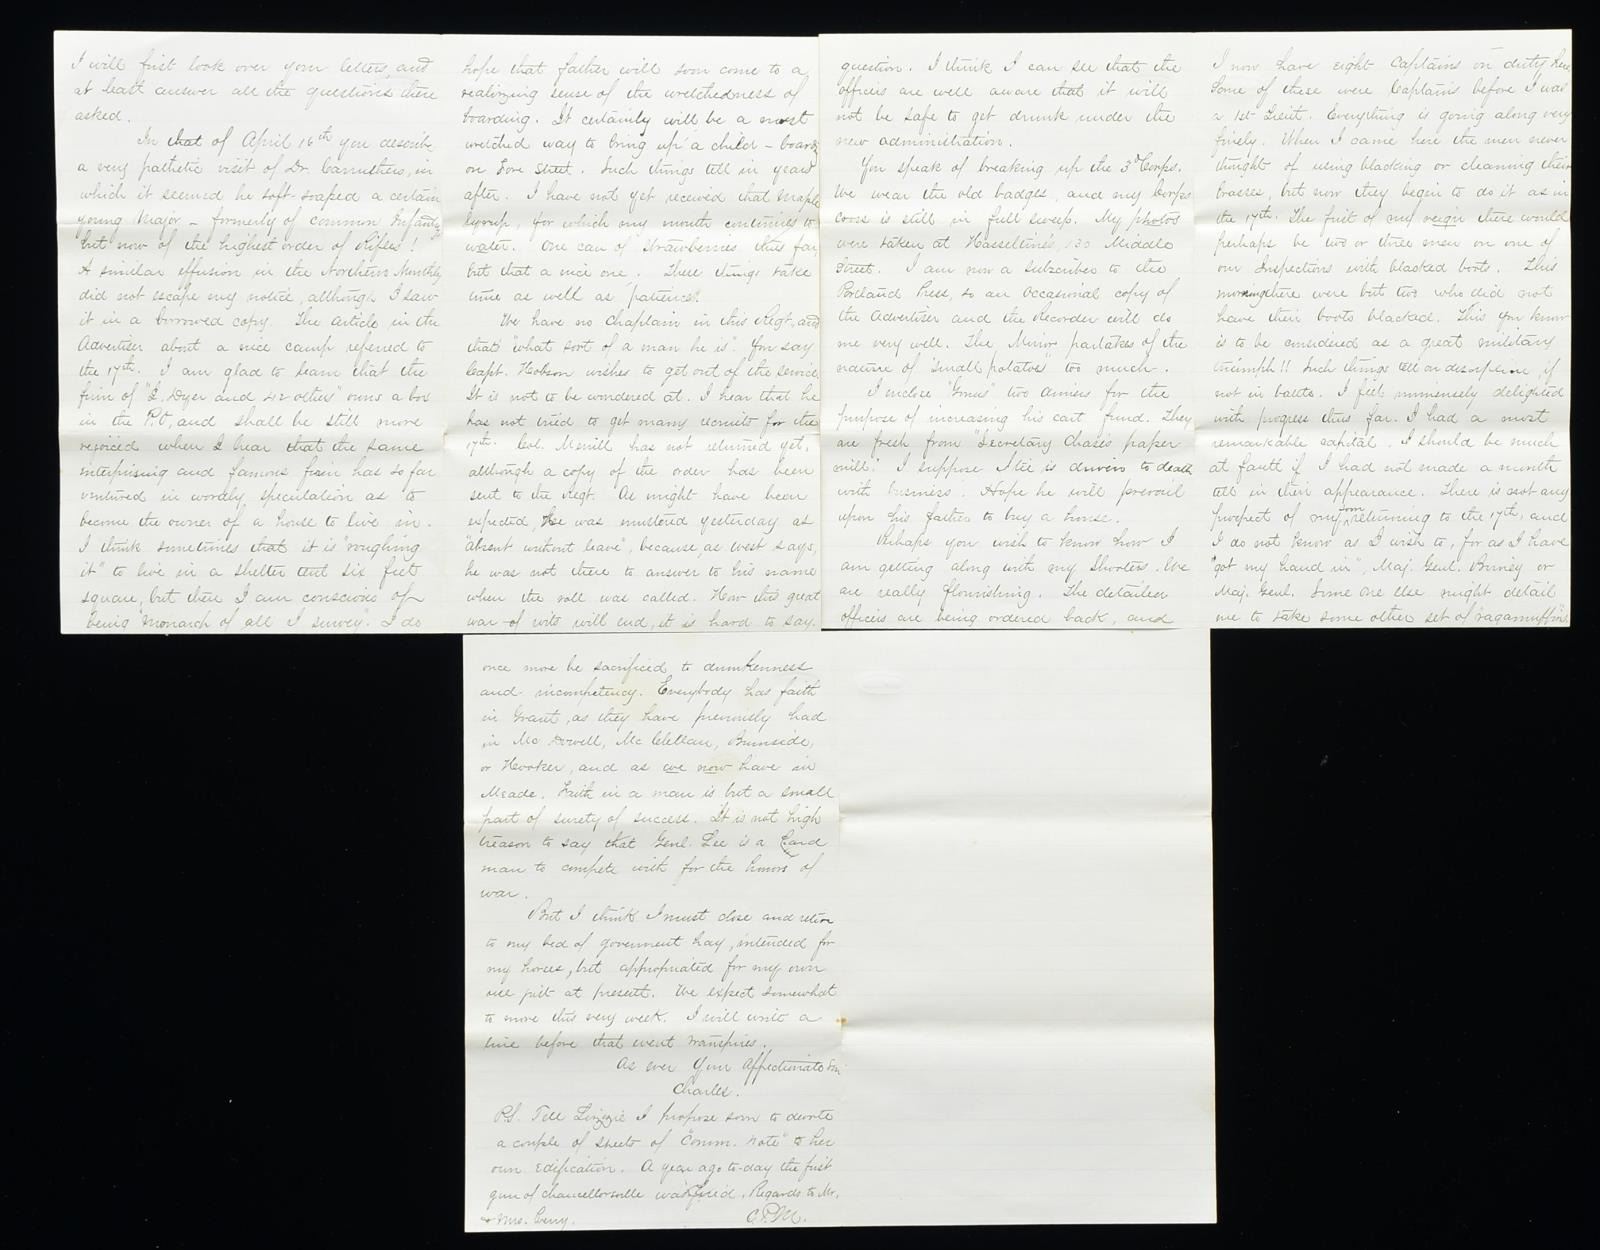 I will first look over your letters, and
at least answer all the questions there
asked.
In that of April 16th you describe
a very pathetic visit of Dr. Carruthers, in
which it seemed he soft-soaped a certain
young Major - formerly of common Infantry
but now of the highest order of Rifles!
A similar effusion in the Northern Monthly
did not escape my notice, although I saw
it in a borrowed copy. The article in the
Advertiser about a nice camp referred to
the 17th. I am glad to learn that the
firm of "I. Dyer and 42 others" owns a box
in the P.O, and shall be still more
rejoiced when I hear that the same
enterprising and famous firm has so far
ventured in worldly speculation as to
become the owner of a house to live in.
I think sometimes that it is "roughing
it" to live in a shelter tent six feet
square, but there I am conscious of
being "monarch of all I survey". I do
hope that father will soon come to a
realizing sense of the wretchedness of
boarding. It certainly will be a most
wretched way to bring up a child - board
on Fore Street. Such things tell in years
after. I have not yet received that Maple
Syrup, for which my mouth continues to
water. One can of Strawberries thus far,
but that a nice one. These things take
time as well as "patience".
We have no Chaplain in this Regt., and
that's "what sort of a man he is". You say
Capt. Hobson wishes to get out of the service.
It is not to be wondered at. I hear that he
has not tried to get many recruits for the
17th. Col. Merrill has not returned yet,
although a copy of the order has been
sent to the Regt. As might have been
expected, he was mustered yesterday as
"absent without leave", because, as West says,
he was not there to answer to his name
when the roll was called. How this great
war of wits will end, it is hard to say.
question. I think I can see that the
officers are well aware that it will
not be safe to get drunk under the
new administration.
You speak of breaking up the 3d Corps.
We wear the old badges, and my Corps
cross is still in full sweep. My photos
were taken at Hasseltine's, 130 Middle
Street. I am now a subscriber to the
Portland Press, so an occasional copy of
the Advertiser and the Recorder will do
me very well. The Mirror partakes of the
nature of "small potatoes" too much.
I enclose "Gmus" two for the
purpose of increasing his cart fund. They
are fresh from "Secretary Chase's paper
mill." I suppose is driven to death
with business. Hope he will prevail
upon his father to buy a house.
Perhaps you wish to know how I
am getting along with my Shooters. We
are really flourishing. The detailed
officers are being ordered back, and
I now have eight Captains on duty here
Some of these were Captains before I was
a 1st Lieut. Everything is going along very
finely. When I came here the men never
thought of using blacking or cleaning their
brasses, but now they begin to do it as in
the 17th. The first of my reign there would
perhaps be two or three men on one of
our Inspections with blacked boots. This
morning there were but two who did not
have their boots blacked. This you know
is to be considered as a great military
triumph!! Such things tell on discipline, if
not in battle. I feel immensely delighted
with progress thus far. I had a most
remarkable capital. I should be much
at fault if I had not made a month
tell in their appearance. There is not any
prospect of my soon returning to the 17th, and
I do not know as I wish to, for as I have
"got my hand in", Maj. Genl. Birney or
Maj. Genl. Some one else might detail
me to take some other set of ragamuffins
once more be sacrificed to drunkenness
and incompetency. Everybody has faith
in Grant, as they have previously had
in McDowell, McClellan, Burnside,
or Hooker, and as we now have in
Meade. Faith in a man is but a small
part of surety of success. It is not high
treason to say that Genl. Lee is a hard
man to compete with for the honors of
war.
But I think I must close and retire
to my bed of government hay, intended for
my horses, but appropriated for my own
use just at present. We expect somewhat
to move this very week. I will write a
line before that event transpires.
As ever Your Affectionate Son
Charles.
P.S. Tell Lizzie I propose soon to devote
a couple of sheets of "Comm. Note" to her
own edification. A year ago to-day the first
gun of Chancellorsville was fired. Regards to Mr.
& Mrs.
C.P.M.